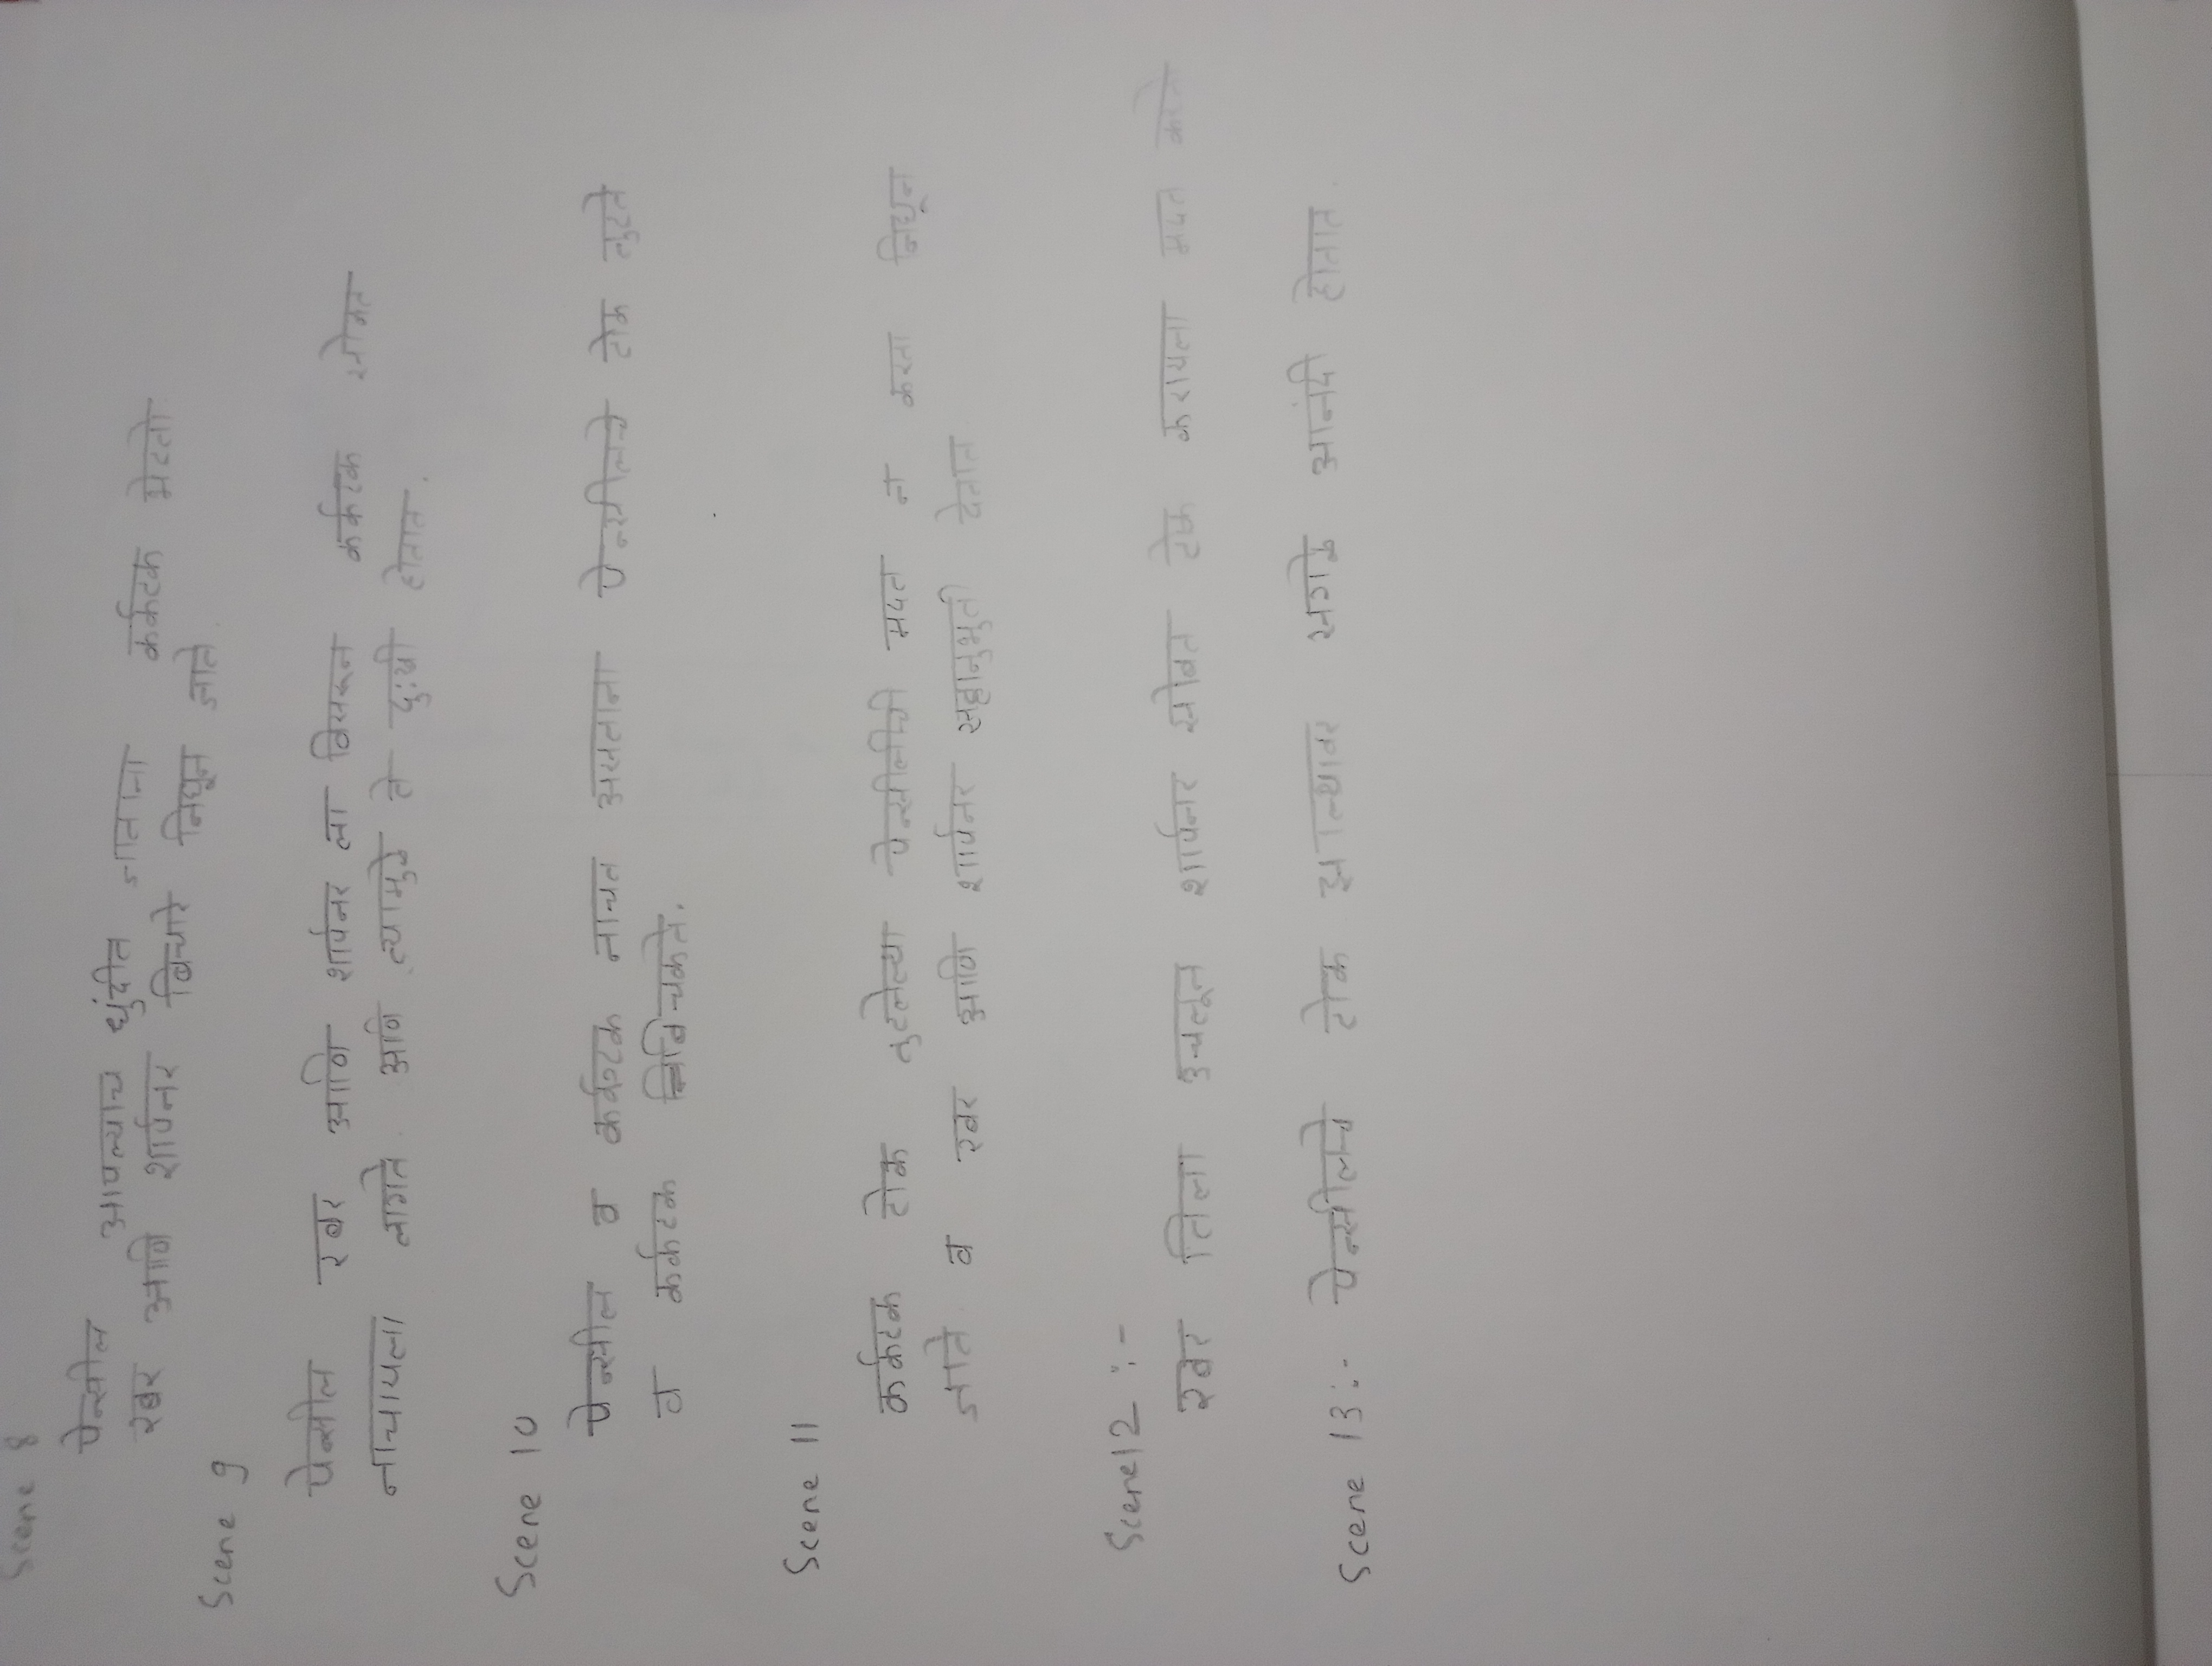 Scene 8
पेन्सील आपल्याच धुंदीत जाताना कर्कटक भेटतो
रबर आणि शार्पनर बिचारे निघून जाते.
Scene 9
पेन्सील रबर आणि शार्पनर ला विसरून कर्कटक सोबत
नाचायला लागते. आणि त्यामुळे ते दुःखी होतात.
Scene 10
पेन्सील व कर्कटक नाचत असताना पेन्सीलचे टोक तुटते
व कर्कटक बिचकते.
Scene 11
कर्कटक टोक तुटलेल्या पेन्सीलीची मदत न करता निघून
जाते व रबर आणि शार्पनर सहानुभुती देतात
Scene12 :-
रबर तिला उचलून शार्पनर सोबत टोक करायला मदत करते
Scene 13:- पेन्सीलचे टोक झाल्यावर सगळे आनंदी होतात.